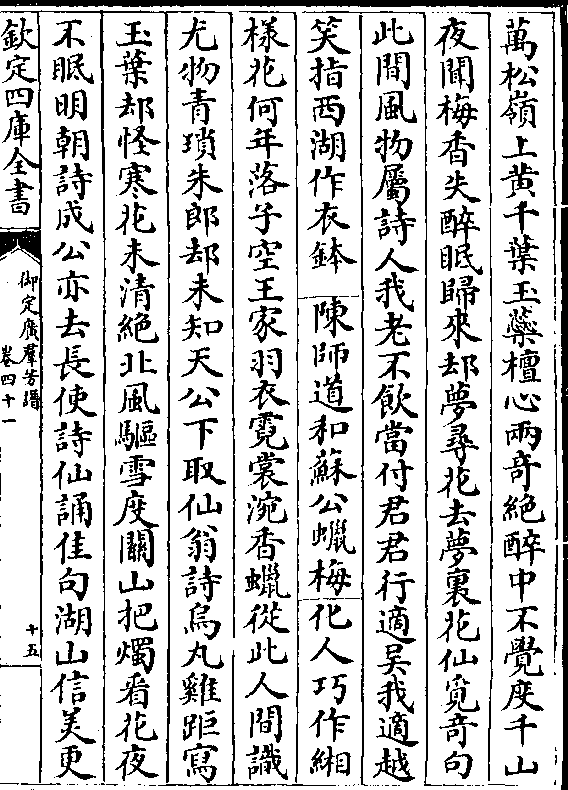 萬松嶺上黄千葉玉蘂檀心兩奇絶醉中不覺度千山
夜聞梅香失醉眠歸來却夢尋花去夢裏花仙覓奇句
此間風物屬詩人我老不飲當付君君行適吳我適越
笑指西湖作衣鉢 陳師道和蘇公蠟梅 化人巧作緗
様花何年落子空王家羽衣霓裳涴香蠟從此人間識
尤物青瑣朱郎却未知天公下取仙翁詩烏丸雞距寫
玉葉却怪寒花未清絶北風驅雪度關山把燭看花夜
不眠明朝詩成公亦去長使詩仙誦佳句湖山信美更
欽定四庫全書
御定廣羣芳譜
卷四十一
十五